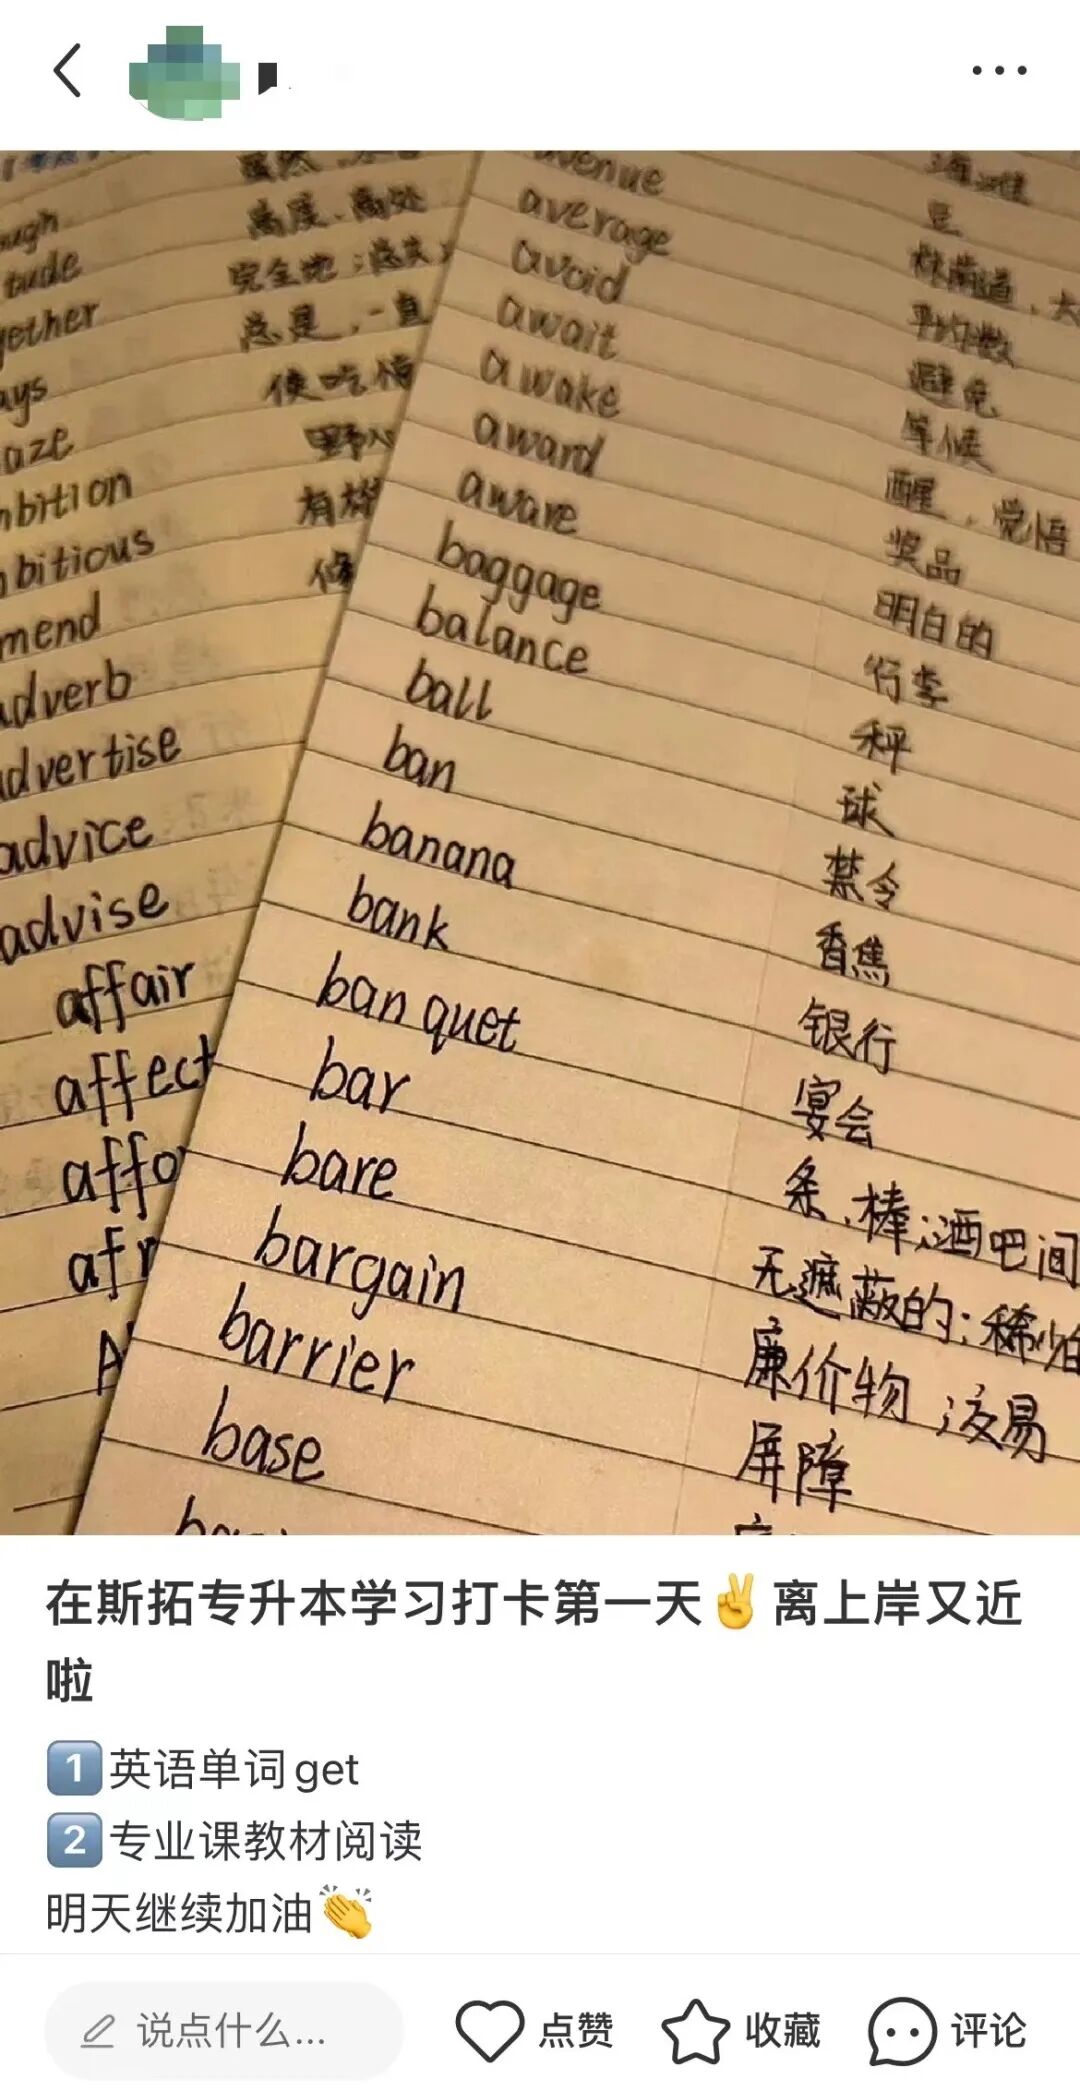 虽然
ough
高度、高处
tude
完全地；总共；
gether
总是，一直
ays
使吃惊
aze
野心
mbition
有
mbitious
修
mend
adverb
advertise
advice
advise
affair
affect
affo
afr
A
venue
average
林荫道，大
avoid
平均数
await
避免
awake
等候
award
醒，觉悟
aware
奖品
baggage
明白的
balance
行李
ball
秤
ban
球
banana
禁令
bank
香蕉
banquet
银行
bar
宴会
bare
条、棒；酒吧间
bargain
无遮蔽的；稀少的
barrier
廉价物；交易
base
屏障
在斯拓专升本学习打卡第一天✌️离上岸又近
啦
1️⃣英语单词get
2️⃣专业课教材阅读
明天继续加油👏
说点什么...
点赞
收藏
评论